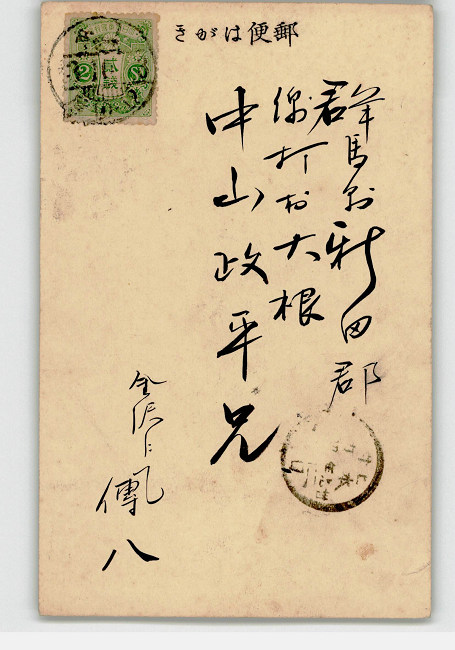 郵便はがき
群馬県新田郡
綿打村大根
中山政平兄
金沢
傳八
2 貳銭 2